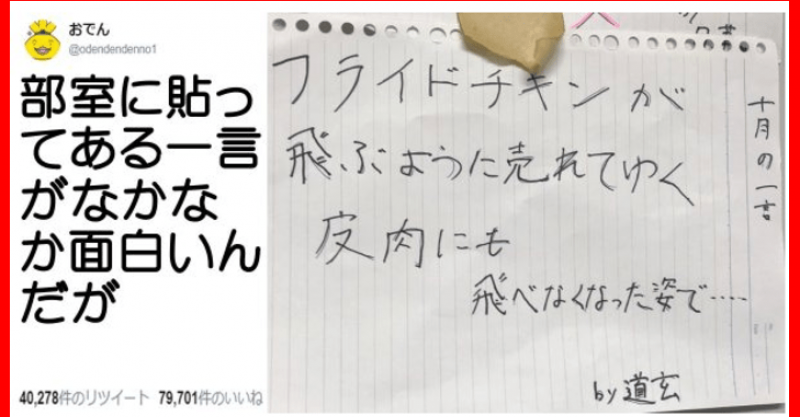 おでん
@odendendenno1
部室に貼っ
てある一言
がなかな
か面白いん
だが
40,278件のリツイート 79,701件のいいね
十月の一言
フライドチキンが
飛ぶように売れてゆく
皮肉にも
飛べなくなった姿で‥‥
by 道玄